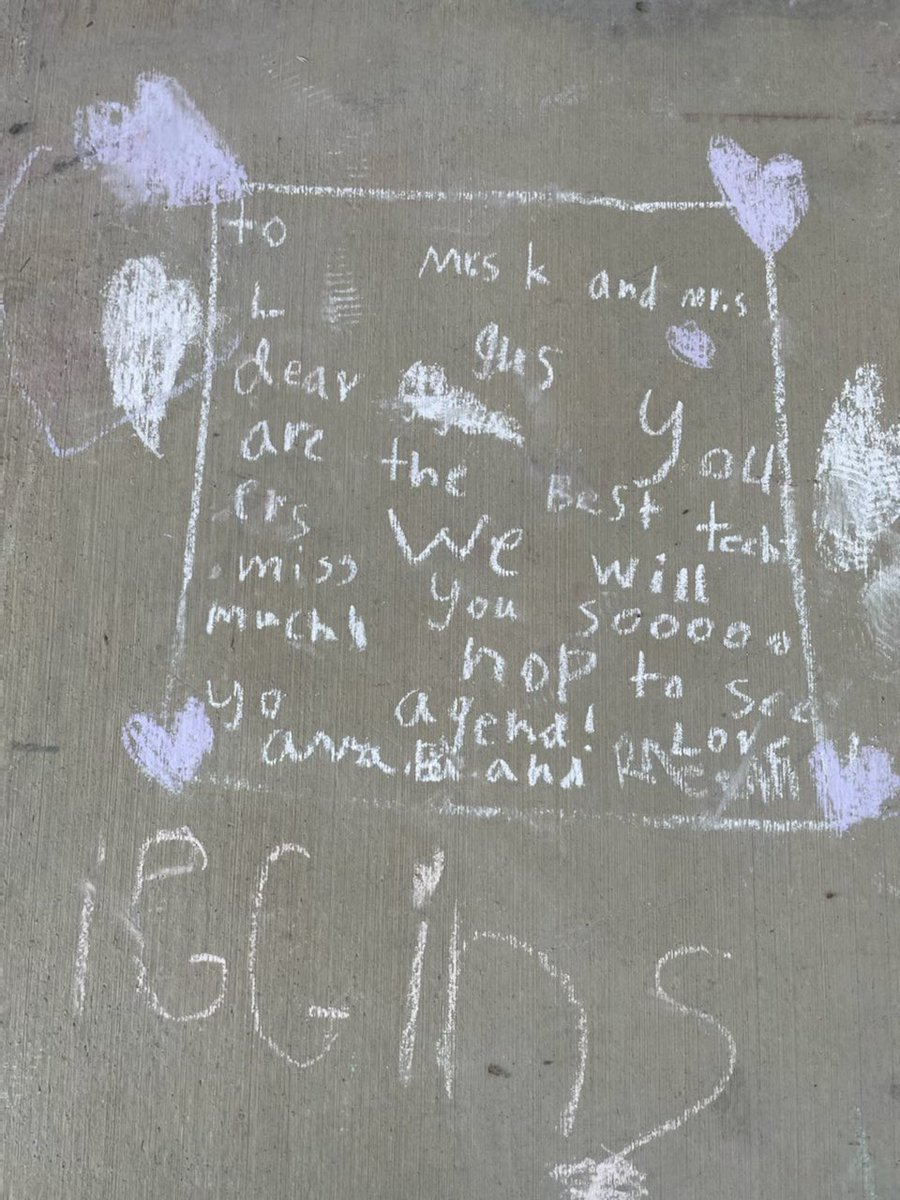 to
Mrs k and mr.s
L
gus
dear
You
are the Best tech
ers We will
miss you sooooo
much! hop to see
yo agend! Love
anna. and
iGGins